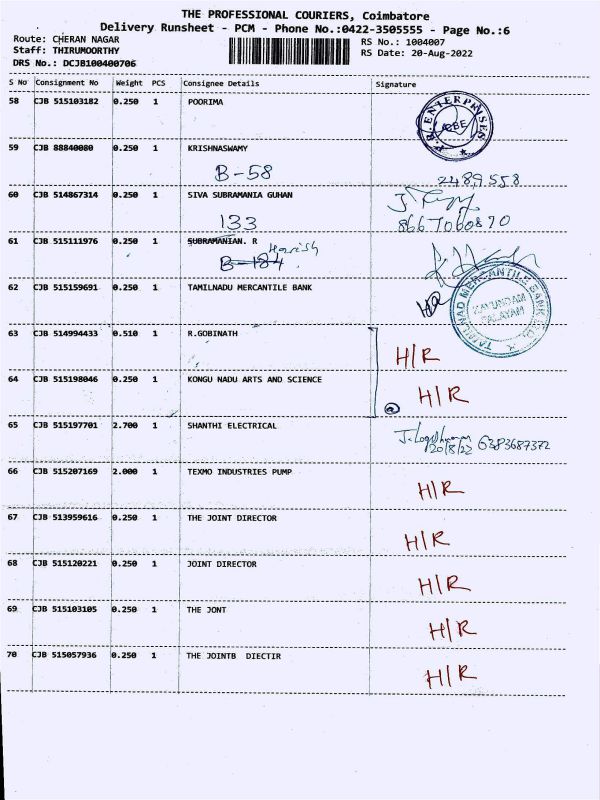 THE PROFESSIONAL COURIERS, Coimbatore
Delivery Runsheet - PCM - Phone No.:0422-3505555 - Page No.:6
Route: CHERAN NAGAR
RS No.: 1004007
Staff: THIRUMOORTHY
RS Date: 20-Aug-2022
DRS No.: DCJB100400706
S No Consignment No Weight PCS Consignee Details Signature
58 CJB 515103182 0.250 1 POORIMA
P.R. ENTERPRISES
CBE
59 CJB 88840080 0.250 1 KRISHNASWAMY
B-58
2489558
60 CJB 514867314 0.250 1 SIVA SUBRAMANIA GUHAN
133
8667060870
61 CJB 515111976 0.250 1 SUBRAMANIAN. R
Harish
B-184
62 CJB 515159691 0.250 1 TAMILNADU MERCANTILE BANK
H/R
TAMILNAD MERCANTILE BANK LTD.
KAVUNDAM
PALAYAM
63 CJB 514994433 0.510 1 R.GOBINATH
H/R
64 CJB 515198046 0.250 1 KONGU NADU ARTS AND SCIENCE
H/R
65 CJB 515197701 2.700 1 SHANTHI ELECTRICAL
20/8/22 6383687372
66 CJB 515207169 2.000 1 TEXMO INDUSTRIES PUMP
H/R
67 CJB 513959616 0.250 1 THE JOINT DIRECTOR
H/R
68 CJB 515120221 0.250 1 JOINT DIRECTOR
H/R
69 CJB 515103105 0.250 1 THE JONT
H/R
70 CJB 515057936 0.250 1 THE JOINTB DIECTIR
H/R